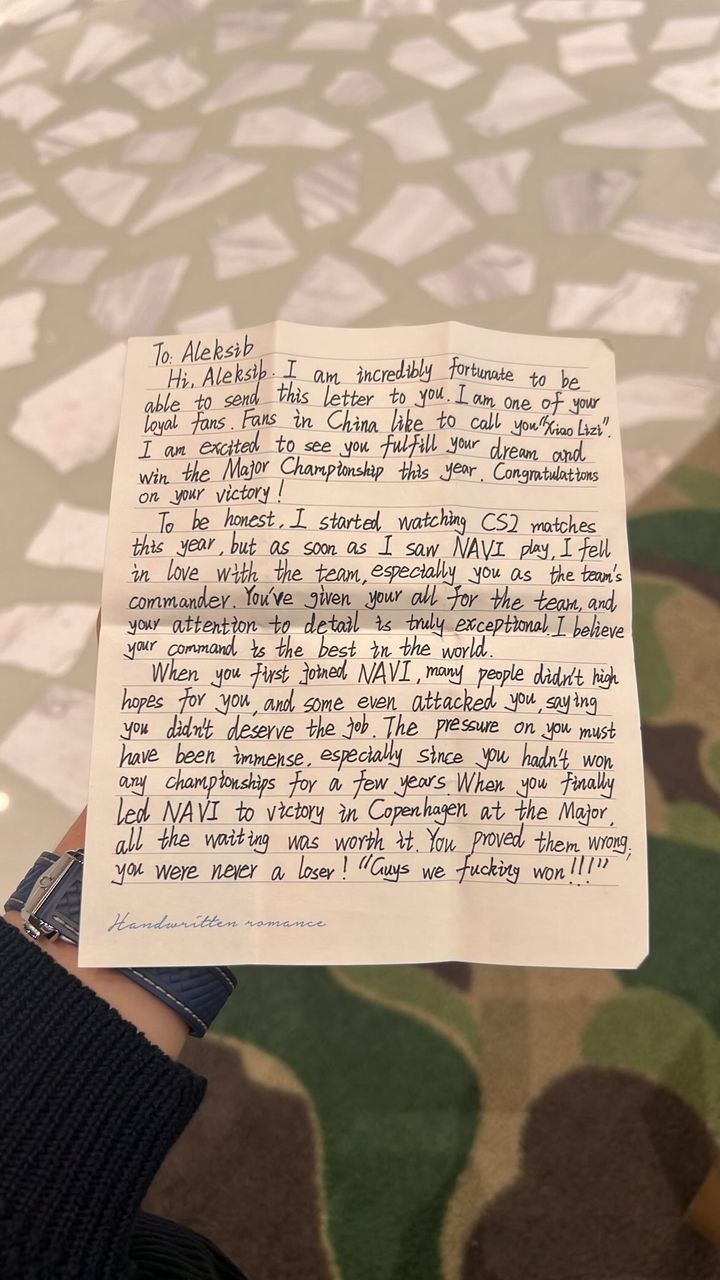 To: Aleksib
Hi, Aleksib. I am incredibly fortunate to be
able to send this letter to you. I am one of your
loyal fans. Fans in China like to call you "Xiao Lizi".
I am excited to see you fulfill your dream and
win the Major Championship this year. Congratulations
on your victory!
To be honest, I started watching CS2 matches
this year, but as soon as I saw NAVI play, I fell
in love with the team, especially you as the team's
commander. You've given your all for the team, and
your attention to detail is truly exceptional. I believe
your command is the best in the world.
When you first joined NAVI, many people didn't high
hopes for you, and some even attacked you, saying
you didn't deserve the job. The pressure on you must
have been immense, especially since you hadn't won
any championships for a few years. When you finally
led NAVI to victory in Copenhagen at the Major,
all the waiting was worth it. You proved them wrong,
you were never a loser! "Guys we fucking won!!!"
Handwritten romance